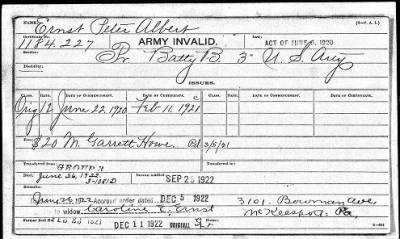 NAME: Ernst Peter Albert
1184,227
ARMY INVALID.
ACT OF JUNE 5, 1920
Service: Pv. Batty B. 3" U. S. Arty
Disability:
ISSUES.
CLASS. RATE. DATE OF COMMENCEMENT. DATE OF CERTIFICATE. CLASS. RATE. DATE OF COMMENCEMENT. DATE OF CERTIFICATE.
Orig 12 June 22, 1920 Feb 11, 1921
From $20 M. Garrett Howe.
Transferred from GROUP
Died June 26, 1922 SEP 25 1922
June 26, 1922 Accrued order dated DEC 5 1922
to widow Caroline E. Ernst
DEC 11 1922 ORIGINAL
3101. Bowman Ave,
McKeesport, Pa,